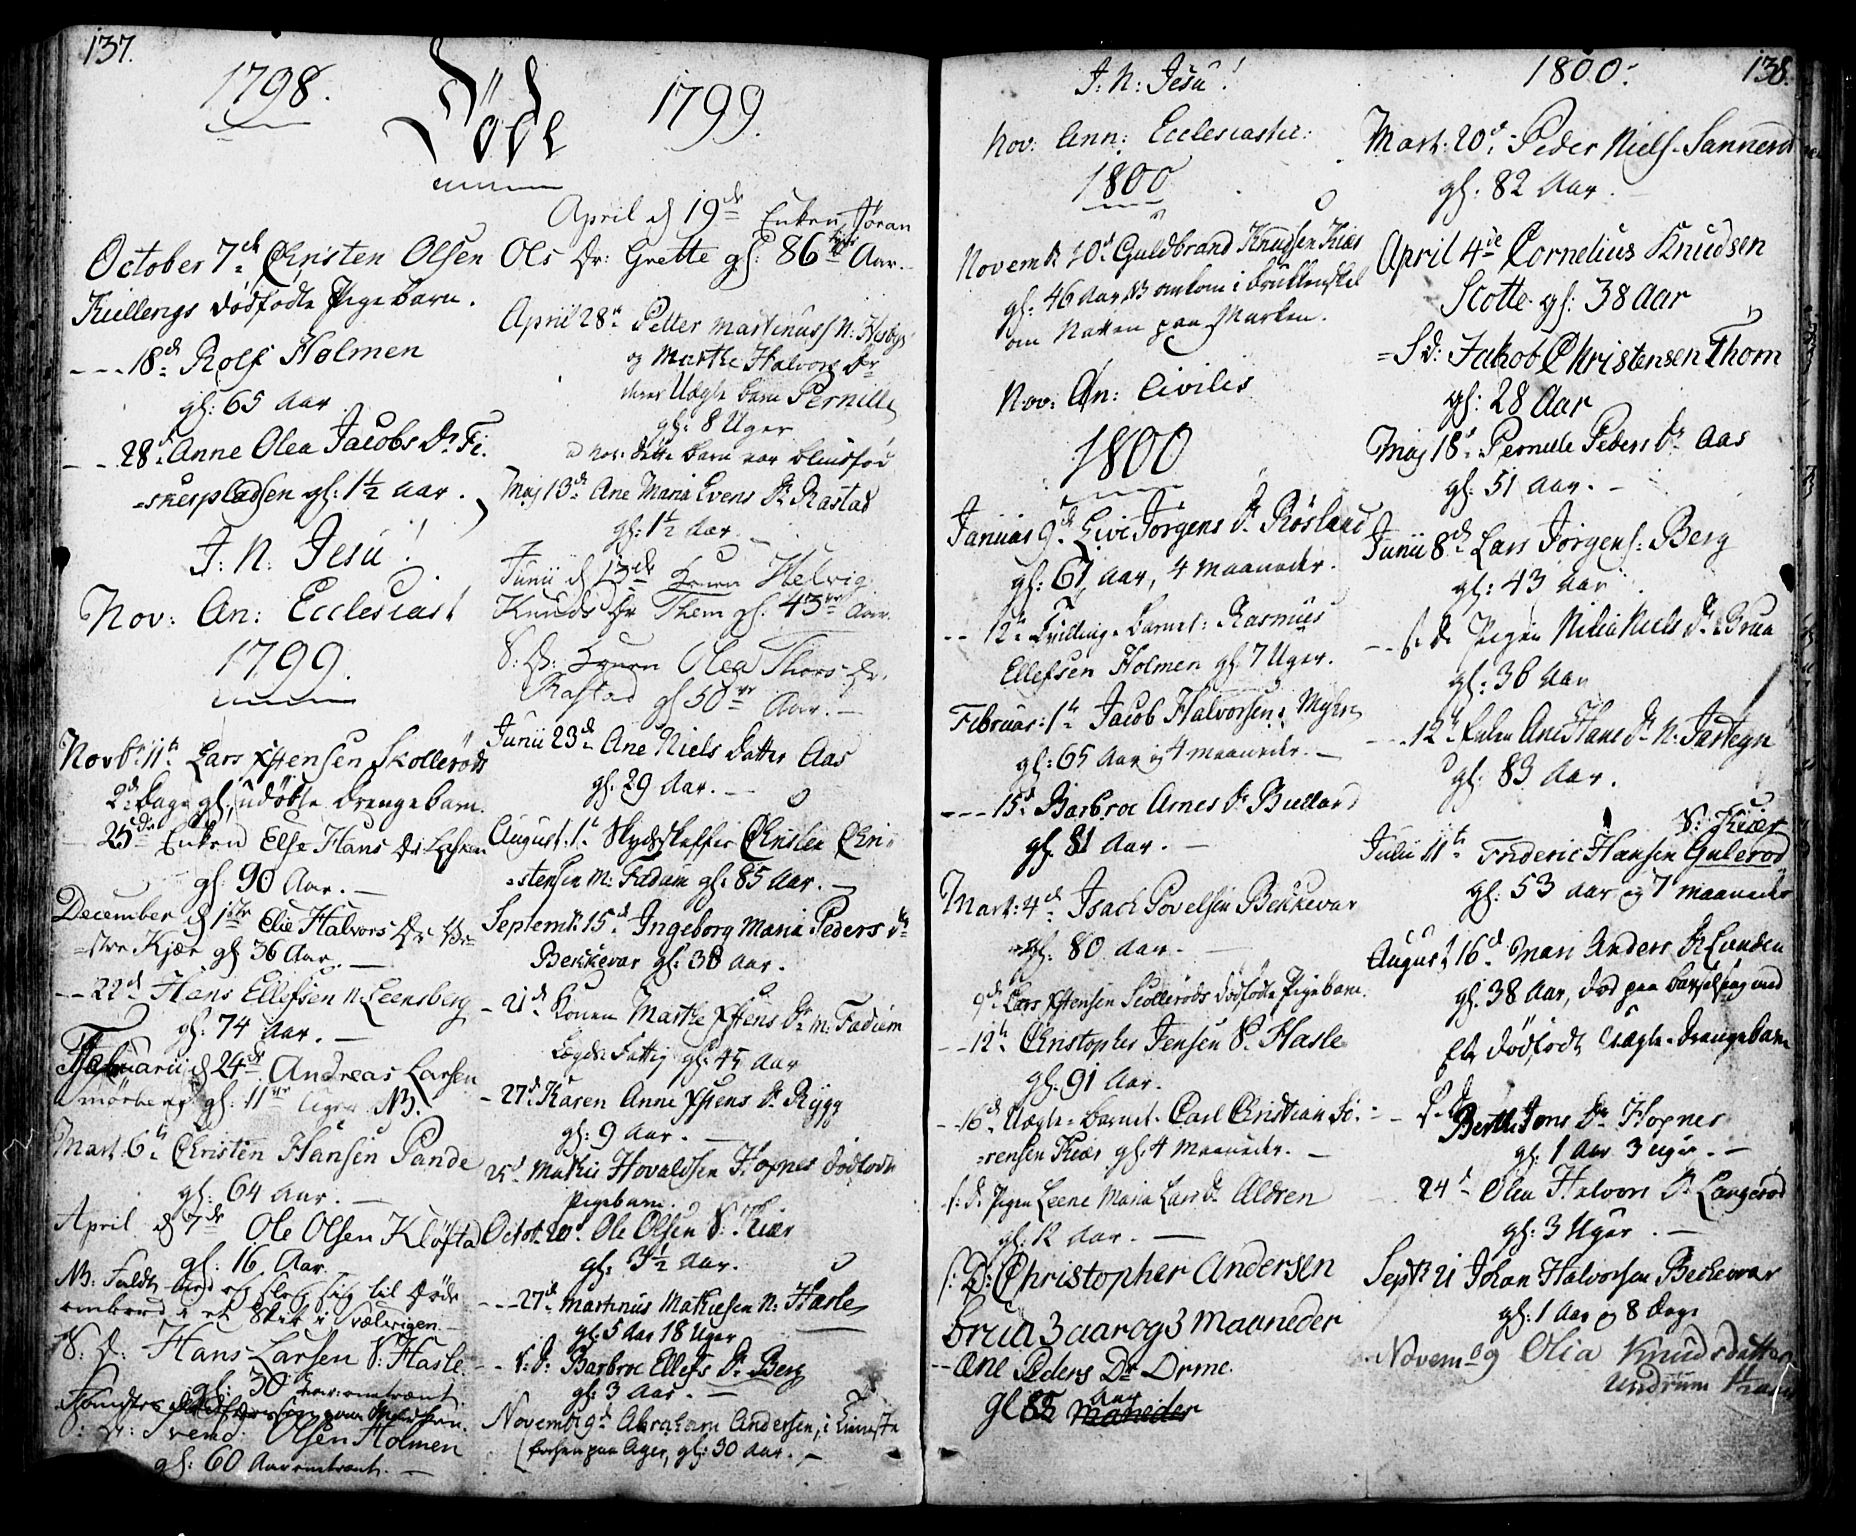 137.
1798.
Döde
1799.
October 7de Christen Olsen
Kullerigs dödfødte Pigebarn.
- - - 18de Rolf Holmen
gl: 65 Aar
- - 28de Anne Olea Jacobs Dr Fi-
=skerpladsen gl: 1½ Aar.
J: N: Jesu!
Nov: An: Ecclesiast
1799.
Novbr 11te Lars Chrstensen Skollerøds
2de Dage gl: udøbte Drengebarn.
25de Enken Else Hans Dr
gl: 90 Aar. —
December d 1ste Elie Halvors Dr
=stre Kjær gl: 36 Aar. —
- - 22de Hans Ellefsen N: Leensberg
gl: 74 Aar. —
Februarii d 24de Andreas Larsen
Smörberg gl: 11 Uger NB.
Mart: 6te Christen Hansen Pande
gl: 64 Aar. —
April d 7de Ole Olsen Kløfta
gl: 16 Aar.
NB: Faldt ned og slog sig til Døde
ombord i et Skib i Vælvigen
S: D: Hans Larsen S: Hasle
gl: 30 Aar omtrænt
S: D: Svend Olsen Holmen
gl: 60 Aar omtrænt. —
April d 19de Enken Jöran
Ols Dr: Grette gl: 86 Aar.
April 28de Petter Martinuss N: Hesbys
og Marthe Halvors Dr
deres Uægte barn Pernille
gl: 8 Uger
dette barn var blindfød
Maj 13de Ane Maria Evens Dr Rastad
gl: 1½ Aar —
Junii d 13de Konen Helvig
Knuds Dr Them gl. 43 Aar.
S: D: Konen Olea Thors Dr.
Rastad gl 50 Aar. —
Junii 23de Ane Niels Datter Aas
gl: 29 Aar. —
August 1te Skydskaffer Christen Chri-
=stensen M: Fadum gl: 85 Aar. —
Septembr 15de Ingeborg Maria Peders Dr
Bekkevar gl: 38 Aar.
- 21de Konen Marthe Chrstens Dr M: Fadum
Lægds Fattig gl: 45 Aar
- 27de Karen Anne Chrstens Dr Rygg
gl: 9 Aar. —
25de Mathis Hovaldsen Hognes dödfødte
Pigebarn.
Octob. 20de Ole Olsen S: Kiær
gl: 3½ Aar.
- - - 27de Martinus Mathisen N: Hasle
gl: 5 Aar 18 Uger
- - S: D: Barbroe Ellefs Dr Berg
gl: 3 Aar. —
Novembr 9de Abraham Andersen, i Tieneste
paa Ager, gl: 30 Aar. —
J: N: Jesu!
Nov: Ann: Ecclesiastic:
1800
Novembr 10de Guldbrand Knudsen Kiær
gl: 46 Aar NB omkom i Drukkenskab
om Natten paa Marken.
Nov: An: Civilis
1800
Januar 9de Live Jörgens Dr Rösland
gl: 67 Aar, 4 Maaneder.
- - 12te Tvilling-Barnet: Rasmus
Ellefsen Holmen gl: 7 Uger.
Februar: 1te Jacob Halvorsen: Myhre
gl: 65 Aar og 4 Maaneder. —
- - - 15de Barbroe Arnes Dr Bulland
gl: 81 Aar. —
Mart: 4de Isach Povelsen Bekkevar
gl: 80 Aar. —
9de Lars Chrstensen Scollerøds dödfødte Pigebarn.
- - 12te Christopher Jensen V: Hasle
gl: 91 Aar.
- - 16de Uægte-Barnet Carl Christian Sö-
=rensen Kiær gl: 4 Maaneder. —
s: d: Pigen Leene Maria Lars Dr Aldren
gl: 12 Aar. —
s: D: Christopher Andersen
Brua 3 aar og 3 Maaneder
- - Ane Peders Dr Orme
Aar
gl 85 Maaneder
1800.
138.
Mart: 20de Peder Niels. Sannerød
gl: 82 Aar.
April 4de Cornelius Knudsen
Scotte gl: 38 Aar
= S d: Jakob Christensen Thom
gl: 28 Aar
Maj 18de Pernille Peders Dr Aas
gl: 51 Aar. —
Junii 8de Lars Jörgens: Berg
gl: 43 Aar
- - s. d. Pigen Nilia Niels Dr Brua
gl: 36 Aar
- - - 12te Enken Ane Hans Dr N: Jartegn
gl: 83 Aar.
S: Kiær
Julii 11te Frideric Hansen Gulerød
gl: 53 Aar og 7 Maaneder
August 16de Mari Anders Dr Lunden
gl: 38 Aar, Død paa Barselseng med
Et Dödfødt Uægte-Drengebarn
- S. d. Berthe Jons Dr Hognes
gl: 1 Aar 3 Uger. —
24de Olea Halvors Dr Langerød
gl: 3 Uger. —
Septbr 21 Johan Halvorsen Bechevar
gl: 1 Aar og 8 Dage
Novem 9 Olia Knudsdatter
Undrum 1½ aar